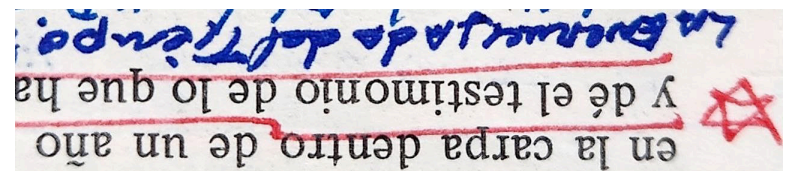 en la carpa dentro de un año
y dé el testimonio de lo que ha
La del Tiempo.